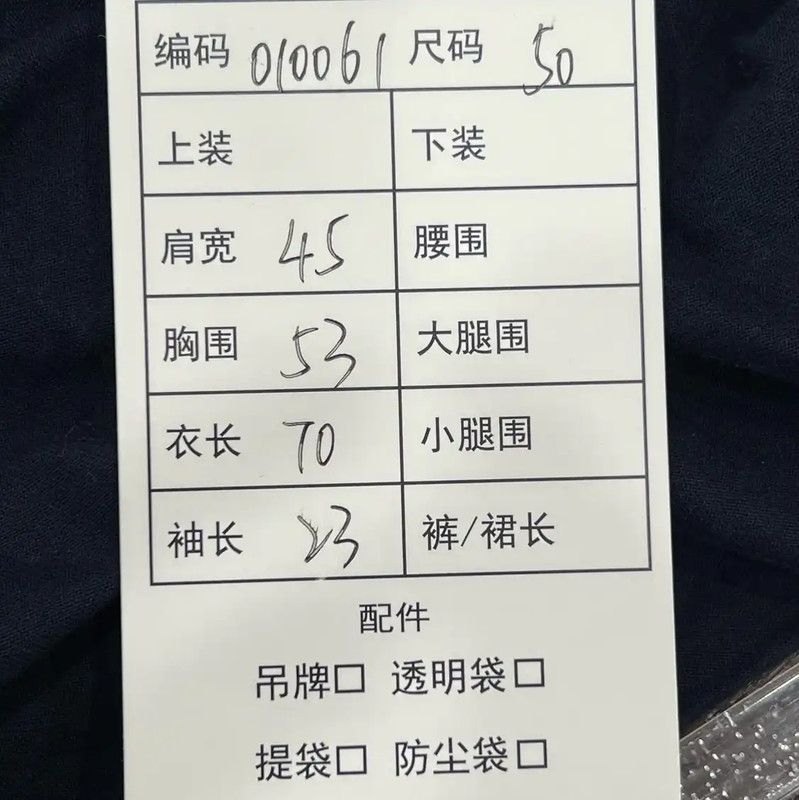 编码 010061 尺码 50
上装 下装
肩宽 45 腰围
胸围 53 大腿围
衣长 70 小腿围
袖长 23 裤/裙长
配件
吊牌□ 透明袋□
提袋□ 防尘袋□